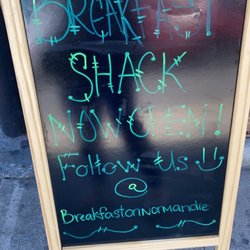 BREAKFAST
SHACK
NOW OPEN!
Follow Us
@
Breakfastonnormandie